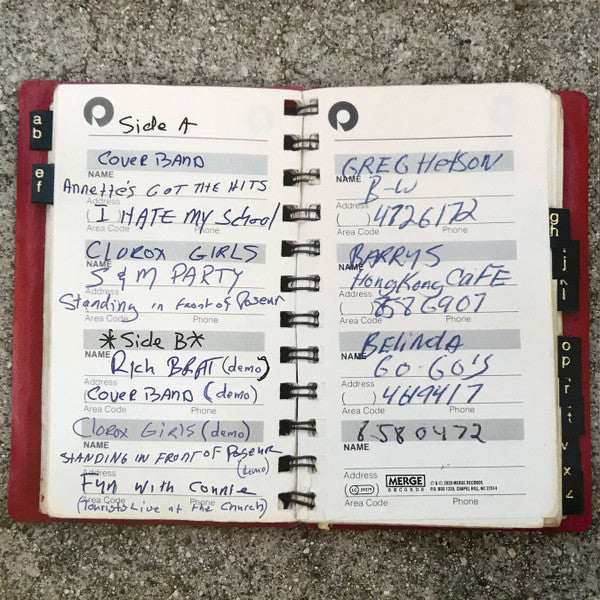 a
b
e
f
Side A
COVER BAND
NAME
ANNETTE'S GOT THE HITS
Address
( ) I HATE MY School
Area Code Phone
CLOROX GIRLS
NAME
S & M PARTY
Address
Standing in Front of Poseur
Area Code Phone
*Side B*
NAME
Rich BRAT (demo)
Address
COVER BAND (demo)
Area Code Phone
Clorox Girls (demo)
NAME
STANDING IN FRONT OF Poseur
(demo)
Address
Fun with Connie
Area Code Phone
(Tourists Live at the Church)
GREG HETSON
NAME
B-W
Address
( ) 4726172
Area Code Phone
BARRYS
NAME
HongKong CaFE
Address
( ) 8586907
Area Code Phone
BELINDA
NAME
GO-GO'S
Address
( ) 4619417
Area Code Phone
6580472
NAME
Address
MERGE
RECORDS
℗ & © 2020 MERGE RECORDS
P.O. BOX 1235, CHAPEL HILL, NC 27514
Area Code Phone
g
h
i
j
o
p
r
t
v
x
z